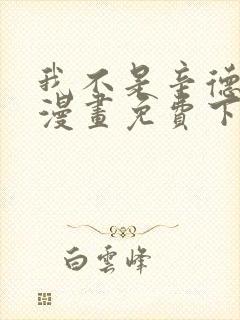 我不是辛德
漫畫免費下
白雲峰